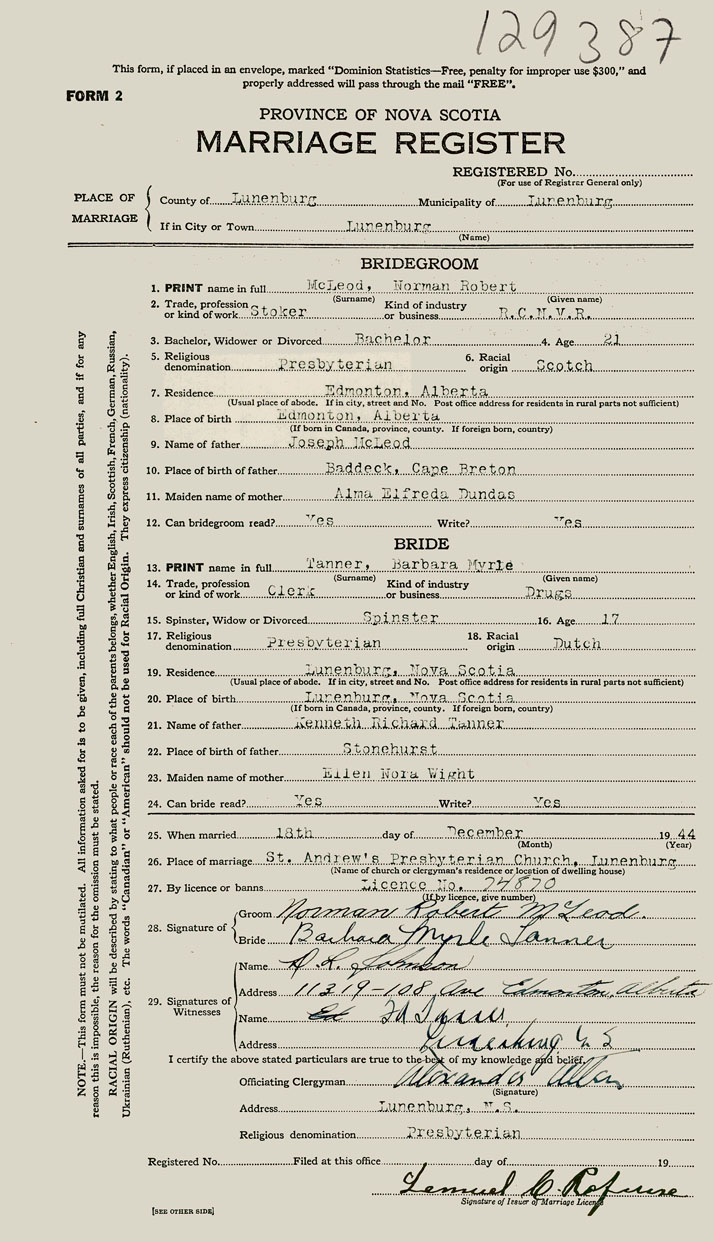 129387
This form, if placed in an envelope, marked "Dominion Statistics—Free, penalty for improper use $300," and
properly addressed will pass through the mail "FREE".
FORM 2
PROVINCE OF NOVA SCOTIA
MARRIAGE REGISTER
REGISTERED No.
(For use of Registrar General only)
PLACE OF MARRIAGE
County of Lunenburg Municipality of Lunenburg
If in City or Town Lunenburg
(Name)
BRIDEGROOM
1. PRINT name in full McLeod, Norman Robert
(Surname) (Given name)
2. Trade, profession or kind of work Stoker Kind of industry or business R.C.N.V.R.
3. Bachelor, Widower or Divorced Bachelor 4. Age 21
5. Religious denomination Presbyterian 6. Racial origin Scotch
7. Residence Edmonton, Alberta
(Usual place of abode. If in city, street and No. Post office address for residents in rural parts not sufficient)
8. Place of birth Edmonton, Alberta
(If born in Canada, province, county. If foreign born, country)
9. Name of father Joseph McLeod
10. Place of birth of father Baddeck, Cape Breton
11. Maiden name of mother Alma Elfreda Dundas
12. Can bridegroom read? Yes Write? Yes
BRIDE
13. PRINT name in full Tanner, Barbara Myrle
(Surname) (Given name)
14. Trade, profession or kind of work Clerk Kind of industry or business Drugs
15. Spinster, Widow or Divorced Spinster 16. Age 17
17. Religious denomination Presbyterian 18. Racial origin Dutch
19. Residence Lunenburg, Nova Scotia
(Usual place of abode. If in city, street and No. Post office address for residents in rural parts not sufficient)
20. Place of birth Lunenburg, Nova Scotia
(If born in Canada, province, county. If foreign born, country)
21. Name of father Kenneth Richard Tanner
22. Place of birth of father Stonehurst
23. Maiden name of mother Ellen Nora Wight
24. Can bride read? Yes Write? Yes
25. When married 18th day of December 1944
(Month) (Year)
26. Place of marriage St. Andrew's Presbyterian Church, Lunenburg
(Name of church or clergyman's residence or location of dwelling house)
27. By licence or banns Licence No. 74870
(If by licence, give number)
28. Signature of
Groom Norman Robert McLeod.
Bride Barbara Myrle Tanner
29. Signatures of Witnesses
Name Johnson
Address 11319-108 Ave Edmonton, Alberta
Name
Address Lunenburg N S
I certify the above stated particulars are true to the best of my knowledge and belief.
Officiating Clergyman Alexander Allen
(Signature)
Address Lunenburg, N.S.
Religious denomination Presbyterian
Registered No. Filed at this office day of 19
Lemuel C. Rofuse
Signature of Issuer of Marriage Licence
[SEE OTHER SIDE]
NOTE.—This form must not be mutilated. All information asked for is to be given, including full Christian and surnames of all parties, and if for any
reason this is impossible, the reason for the omission must be stated.
RACIAL ORIGIN will be described by stating to what people or race each of the parents belongs, whether English, Irish, Scottish, French, German, Russian,
Ukrainian (Ruthenian), etc. The words "Canadian" or "American" should not be used for Racial Origin. They express citizenship (nationality).